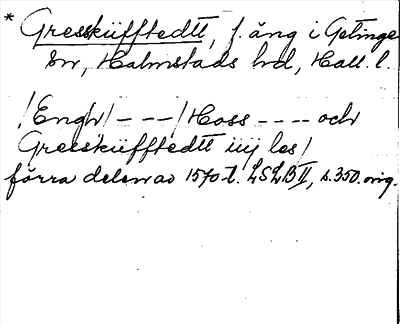 * Gresskiifftedtt, f. äng i Getinge
sn, Halmstads hd, Hall. l.
/Engh/ - - - /Hoss - - - - och
Greeskiifftedtt iiij les/
förra delen av 1570-t. LSLB II, s. 350. orig.